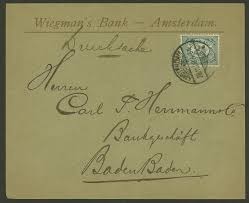 Wiegman's Bank — Amsterdam.
Drucksache
Herren
Carl T. Herrmann
Bankgeschäft
Baden Baden.